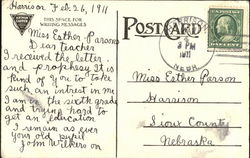 Harrison Feb. 26, 1911
THIS SPACE FOR
WRITING MESSAGES
POST CARD
Miss Esther Parsons
Dear teacher
I received the letter
and prophesy. It is
kind of you to take
such an intrest in me
I am in the sixth grade
and trying hard to
get an education.
I remain as ever
your old pupil
John Wilkerson
3 PM
1911
NEBR.
Miss Esther Parson
Harrison
Sioux County
Nebraska